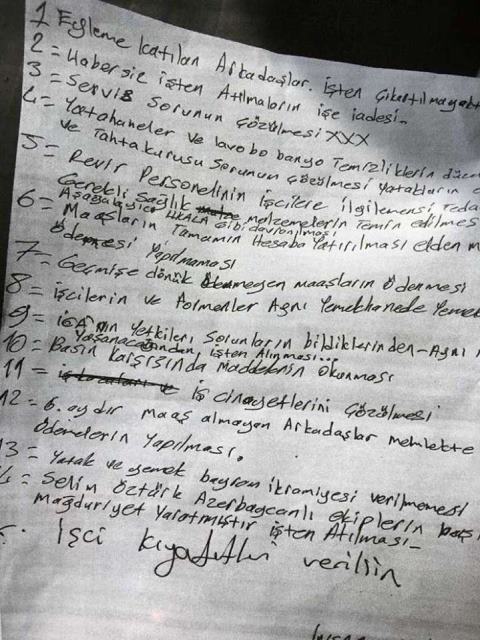 1 Eyleme katılan Arkadaşlar. İşten Çıkartılmayaktı
2 = Habersiz işten Atılmaların işe iadesi-
3 = Servis Sorunun Çözülmesi XXX
4 = Yatahaneler ve lavobo banyo Temizliklerin düzen
ve Tahtakurusu Sorunun Çözülmesi yatakların
5 = Revir Personelinin İşcilere ilgilenensi Teda
Gerekli Sağlık melzemelerin Temin edilmes
Aşağılayıcı gibi davranılması
6 = Maaşların Tamamın Hesaba Yatırılması elden m
Ödemesi Yapılmaması
7 = Geçmişe dönük Ödenmeyen maaşların Ödenmesi
8 = İşcilerin ve Formenler Aynı Yemekhanede Yemek
9 = İGA'nın Yetkileri Sorunların bildiklerinden - Aynı
Yaşanacağından işten Alınması...
10 = Basın karşısında maddelenin okunması
11 = iş cinayetlerini Çözülmesi
12 = 6. aydır maaş almayan Arkadaşlar memlekte
Ödemelerin Yapılması.
13 = Yatak ve yemek bayram ikramiyesi verilmemesi
4 = Selim Öztürk Azerbaycanlı ekiplerin
mağduriyet Yaratmıştır işten Atılması-
İşci kıyafetleri verilsin